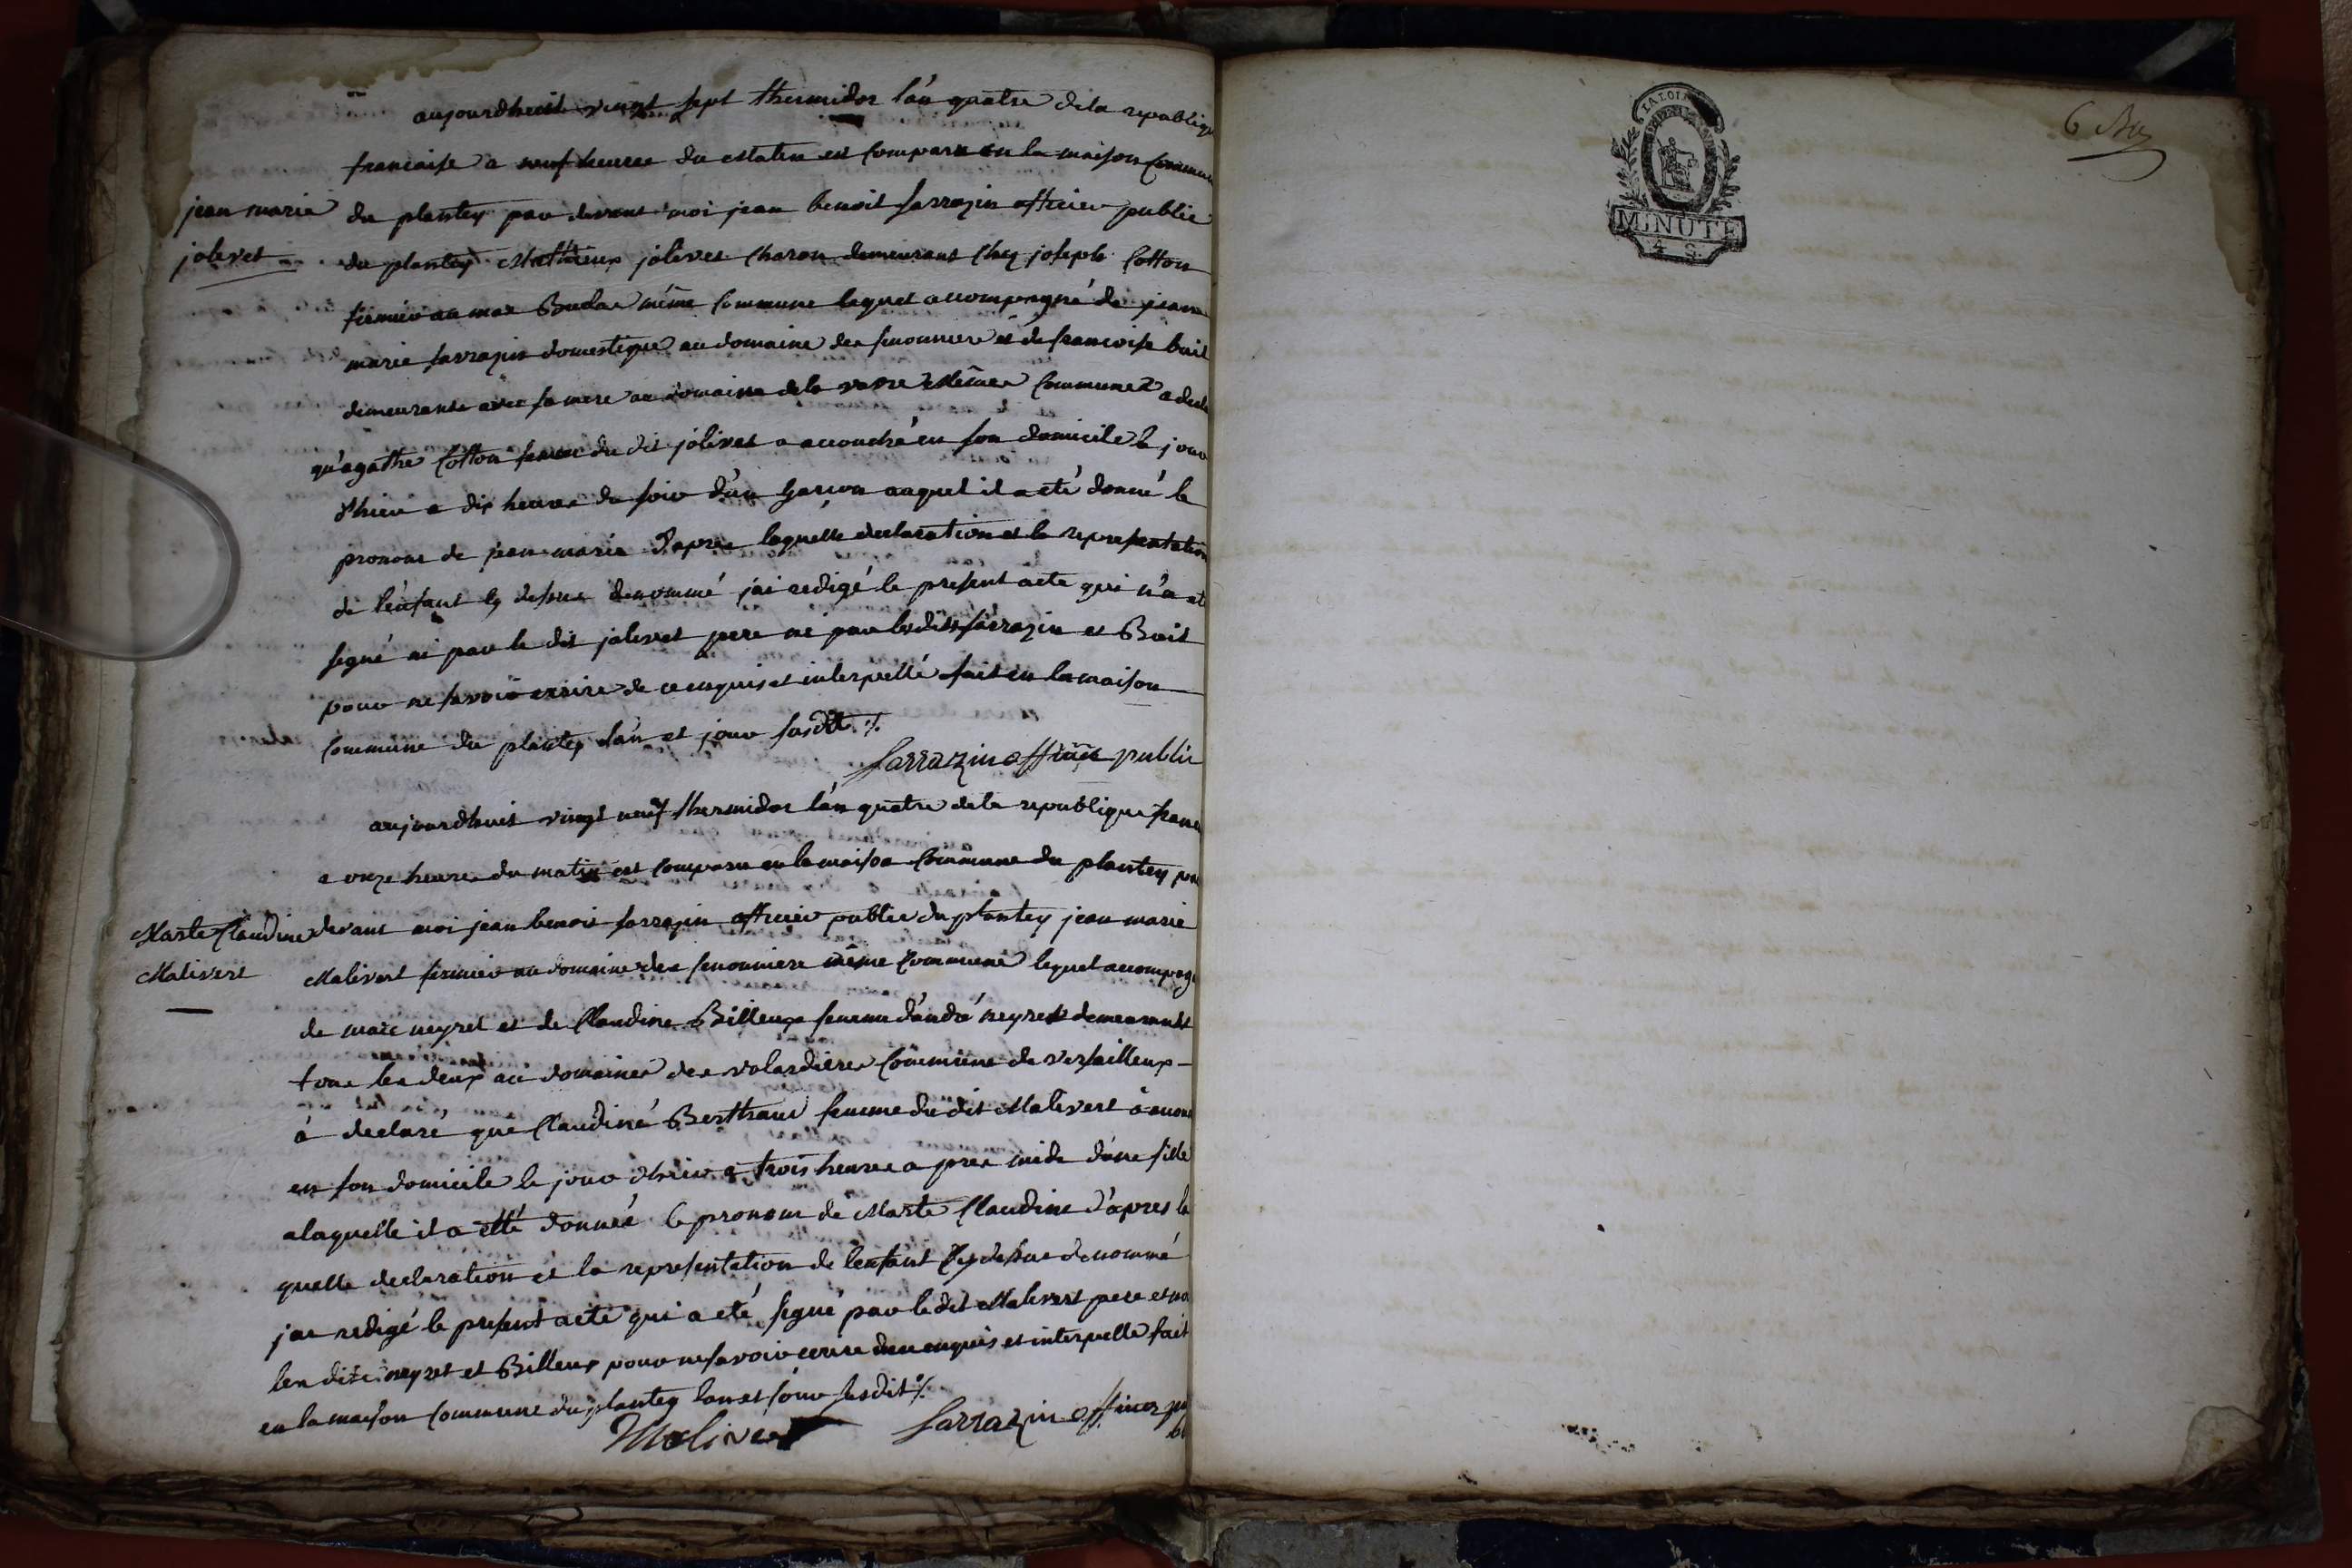 aujourdhuit vingt sept thermidor l'an quatre dela republiqu
francaise a neuf heures du matin est comparu en la maison commun
jean marie
jolivet
du plantey par devant moi jean benoit sarrazin officier public
du plantey Mathieux jolivet charon demeurant chez joseph Cotton
fermier au mas même commune lequel accompagné de jean
marie sarrazin domestique au domaine des et de francoise buit
demeurante avec sa mere au domaine dela même commune a decla
qu'agathe Cotton femme du dit jolivet a accouché en son domicile le jour
d'hier a dix heures du soir d'un garcon auquel il a eté donné le
pronom de jean marie d'apres laquelle declaration et la representation
de l'enfant cy dessus denommé jai redigé le present acte qui n'a eté
signé ni par le dit jolivet pere ni par lesdits sarrazin et Buit
pour ne savoir ecrire de ce enquis et interpellé fait en la maison
commune du plantey l'an et jour susdit ./.
sarrazin officier public
aujourdhuit vingt neuf thermidor l'an quatre dela republique franc
a onze heures du matin est comparu en la maison commune du plantey par
Marte Claudine
Malivert
devant moi jean benoit sarrazin officier public du plantey jean marie
Malivert fermier au domaine des même commune lequel accompag
de neyret et de Claudine Billeux femme d'andré neyret demeurants
tous les deux au domaine des commune de versailleux
a declaré que Claudine femme du dit Malivert
en son domicile le jour d'hier a trois heures apres midi d'une fille
alaquelle il a etté donneé le pronom de Marte Claudine d'apres la
quelle declaration et la representation de lenfant cy dessus denommé
jai redigé le present acte qui a eté signé par ledit Malivert pere et
les dits neyret et Billeux pour ne savoir ecrire enquis et interpellé fait
en la maison commune du plantey lan et jour susdit ./.
Malivert
sarrazin officier pu
bl
LA LOI
MINUTE
4 S.